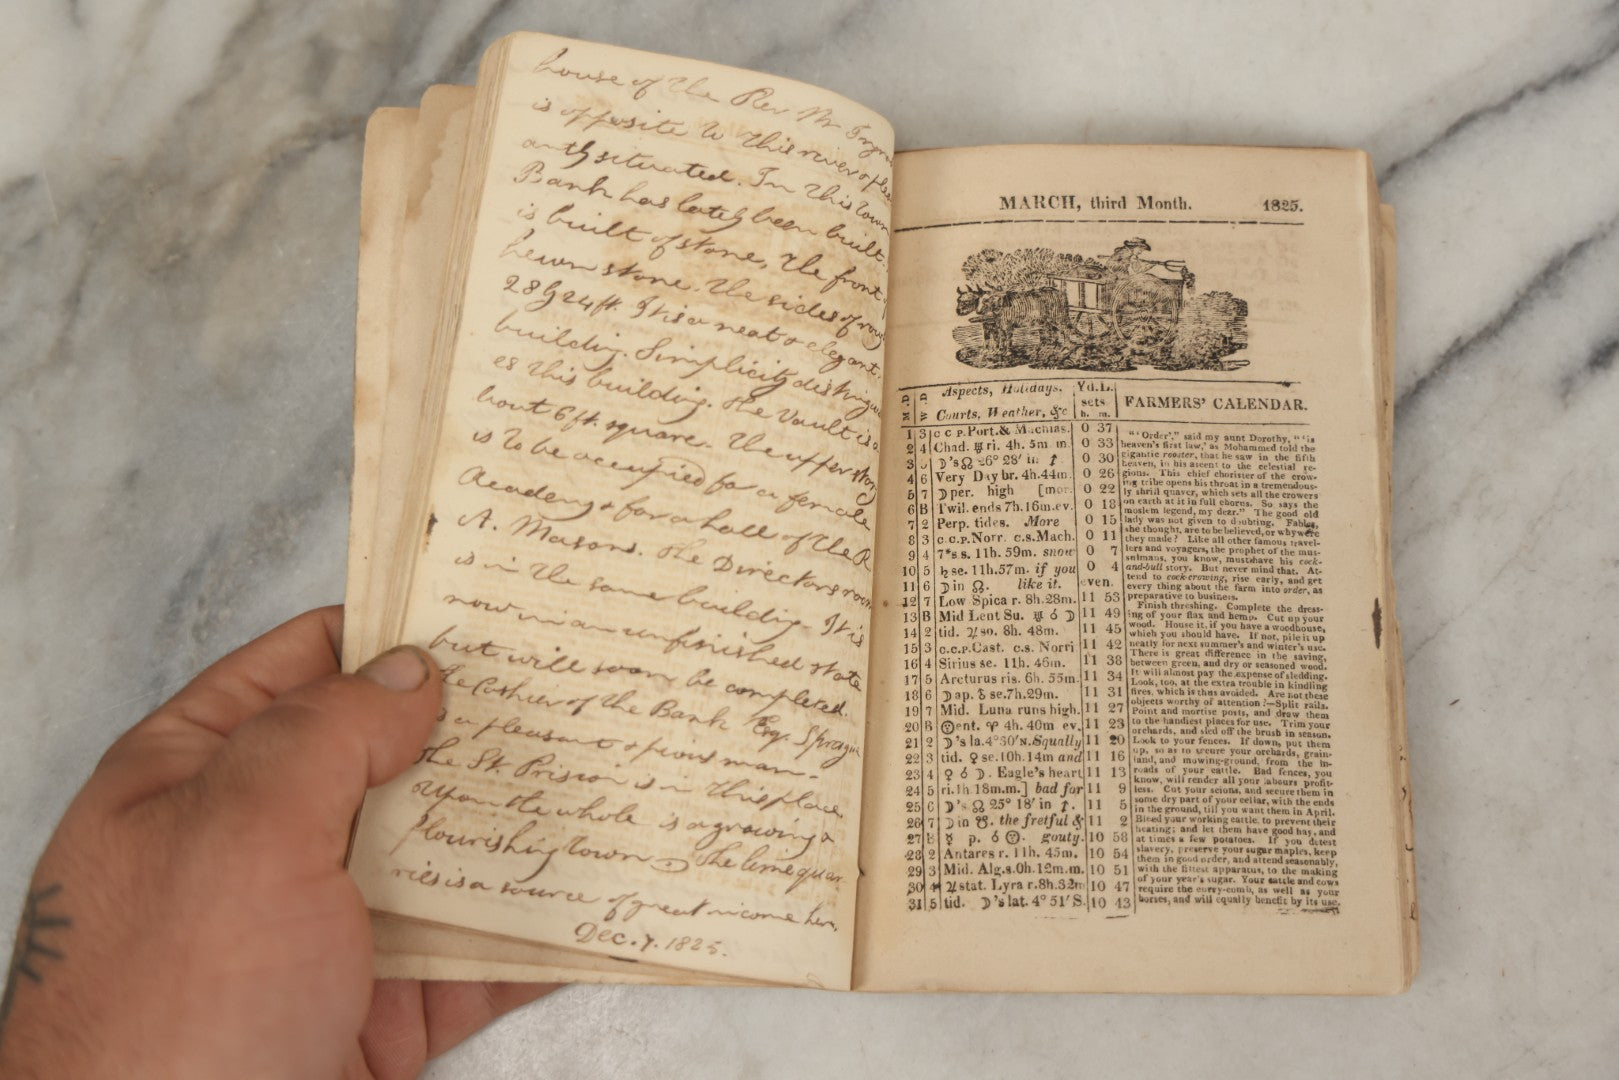 house of the Rev Mr
is opposite to this river & pleas
antly situated. In this town
Bank has lately been built.
is built of stone, the front of
hewn stone. The sides of rough
28 by 24 ft. It is a neat & elegant
building. Simplicity distinguish
es this building. The Vault is a
bout 6 ft. square. The upper story
is to be occupied for a female
Academy & for a hall of the R
A. Masons. The Directors room
is in the same building. It is
now in an unfinished state
but will soon be completed.
The Cashier of the Bank Esq. Sprague
is a pleasant & pious man.
The St. Prision is in this place
Upon the whole is a growing &
flourishing town The lime quar
ries is a source of great income here.
Dec. 7. 1825.
MARCH, third Month. 1825.
M.D W.D Aspects, Holidays, Courts, Weather, &c Yd.L. sets h. m. FARMERS' CALENDAR.
1 3 c c P. Port. & Machias. 0 37
2 4 Chad. ♅ ri. 4h. 5m m. 0 33
3 5 ☽'s ☊ 26° 28' in ♐ 0 30
4 6 Very Day br. 4h.44m. 0 26
5 7 ☽ per. high [mor. 0 22
6 B Twil. ends 7h. 16m.ev. 0 18
7 2 Perp. tides. More 0 15
8 3 c.c.P.Norr. c.s.Mach. 0 11
9 4 7*s s. 11h. 59m. snow 0 7
10 5 ♄ se. 11h.57m. if you 0 4
11 6 ☽ in ☊. like it. even.
12 7 Low Spica r. 8h.28m. 11 53
13 B Mid Lent Su. ♅ ☌ ☽ 11 49
14 2 tid. ♃ so. 8h. 48m. 11 45
15 3 c.c.P.Cast. c.s. Norri 11 42
16 4 Sirius se. 11h. 46m. 11 38
17 5 Arcturus ris. 6h. 55m. 11 34
18 6 ☽ ap. ♁ se.7h.29m. 11 31
19 7 Mid. Luna runs high. 11 27
20 B ☉ent. ♈ 4h. 40m ev. 11 23
21 2 ☽'s la.4°50'N. Squally 11 20
22 3 tid. ♀ se.10h.14m and 11 16
23 4 ♀ ☌ ☽. Eagle's heart 11 13
24 5 ri.1h 18m.m.] bad for 11 9
25 6 ☽'s ☊ 25° 18' in ♐. 11 5
26 7 ☽ in ☋. the fretful & 11 2
27 B ☿ p. ☌ ☉. gouty. 10 58
28 2 Antares r. 11h. 45m. 10 54
29 3 Mid. Alg.s.0h.12m.m. 10 51
30 4 ♃ stat. Lyra r.8h.32m 10 47
31 5 tid. ☽'s lat. 4° 51' S. 10 43
"'Order'," said my aunt Dorothy, "'is
heaven's first law,' as Mohammed told the
gigantic rooster, that he saw in the fifth
heaven, in his ascent to the celestial re-
gions. This chief chorister of the crow-
ing tribe opens his throat in a tremendous-
ly shrill quaver, which sets all the crowers
on earth at it in full chorus. So says the
moslem legend, my dear." The good old
lady was not given to doubting. Fables,
she thought, are to be believed, or why were
they made? Like all other famous travel-
lers and voyagers, the prophet of the mus-
sulmans, you know, must have his cock-
and-bull story. But never mind that. At-
tend to cock-crowing, rise early, and get
every thing about the farm into order, as
preparative to business.
Finish threshing. Complete the dress-
ing of your flax and hemp. Cut up your
wood. House it, if you have a woodhouse,
which you should have. If not, pile it up
neatly for next summer's and winter's use.
There is great difference in the saving,
between green, and dry or seasoned wood.
It will almost pay the expense of sledding.
Look, too, at the extra trouble in kindling
fires, which is thus avoided. Are not these
objects worthy of attention?—Split rails.
Point and mortise posts, and draw them
to the handiest places for use. Trim your
orchards, and sled off the brush in season.
Look to your fences. If down, put them
up, so as to secure your orchards, grain-
land, and mowing-ground, from the in-
roads of your cattle. Bad fences, you
know, will render all your labours profit-
less. Cut your scions, and secure them in
some dry part of your cellar, with the ends
in the ground, till you want them in April.
Bleed your working cattle, to prevent their
heating; and let them have good hay, and
at times a few potatoes. If you detest
slavery, preserve your sugar maples, keep
them in good order, and attend seasonably,
with the fittest apparatus, to the making
of your year's sugar. Your cattle and cows
require the curry-comb, as well as your
horses, and will equally benefit by its use.